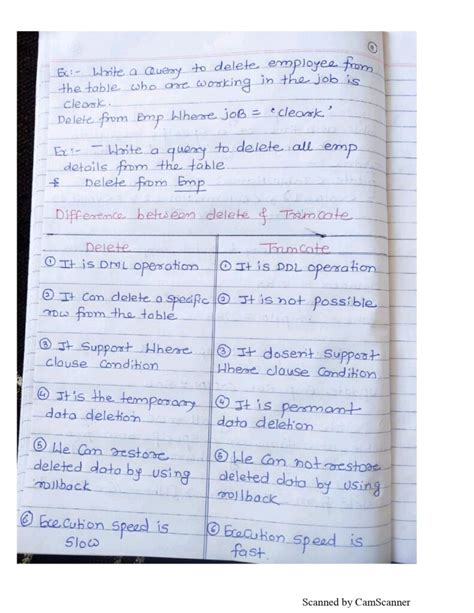 Ex:- Write a Query to delete employee from
the table who are working in the job is
cleark.
Delete from Emp Where joB = 'cleark'
Ex:- - Write a query to delete all emp
details from the table
Delete from Emp
Difference between delete & Truncate
Delete
Truncate
① It is DML operation
① It is DDL operation
② It can delete a specific
row from the table
② It is not possible
③ It Support Where
clause condition
③ It dosent support
Where clause condition
④ It is the temporary
data deletion
④ It is permant
data deletion
⑤ We can restore
deleted data by using
rollback
⑤ We Can not restore
deleted data by using
rollback
⑥ Execution speed is
slow
⑥ Execution speed is
fast.
Scanned by CamScanner